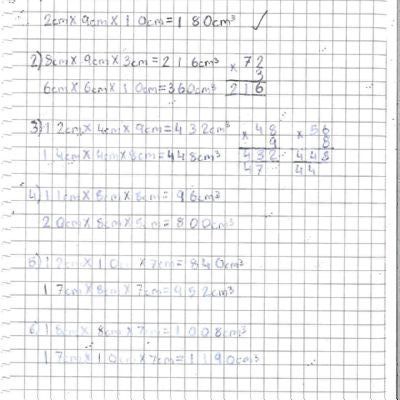 2cm × 9cm × 10cm = 180cm³ ✓
2) 8cm × 9cm × 3cm = 216cm³
6cm × 6cm × 10cm = 360cm³
× 72
3
216
3) 12cm × 4cm × 9cm = 432cm³
14cm × 4cm × 8cm = 448cm³
× 48
9
432
47
× 56
8
448
44
4) 11cm × 8cm × 8cm = 96cm³
20cm × 8cm × 5cm = 800cm³
5) 12cm × 10cm × 7cm = 840cm³
17cm × 8cm × 7cm = 952cm³
6) 18cm × 8cm × 7cm = 1008cm³
17cm × 10cm × 7cm = 1190cm³